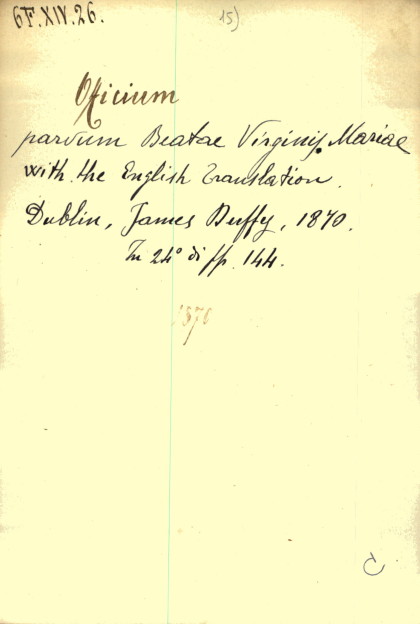 6F.XIV.26.
15)
Officium
parvum Beatae Virginis Mariae
with the English Translation.
Dublin, James Duffy, 1870.
In 24° di pp. 144.
1870
C